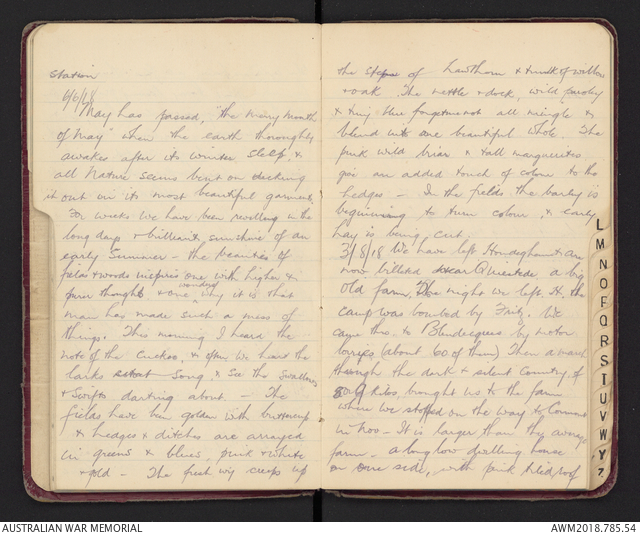 Station
6/6/18
May has passed, "the merry month
of May" when the earth thoroughly
awakes after its winter sleep, &
all Nature seems bent on decking
it out in its most beautiful garments
For weeks we have been revelling in the
long days & brilliant sunshine of an
early Summer – the beauties of
fields & woods inspires one with higher &
purer thoughts & one wonders why it is that
man has made such a mess of
things. This morning I heard the
note of the Cuckoo, & often we hear the
larks song, & see the swallows
& Swifts darting about. – The
fields have been golden with buttercup
& hedges & ditches are arrayed
in greens & blues, pink & white
& gold – The fresh ivy creeps up
the stems of hawthorn & trunk of willow
& oak. The nettle & dock, wild parsley
& tiny blue forgetmenot all mingle &
blend into one beautiful whole. The
pink wild briar & tall marguerites
give an added touch of colour to the
hedges – In the fields the barley is
beginning to turn colour, & early
hay is being cut.
3/8/18 We have left Hondeghem & are
now billeted near a big
old farm. The night we left H, the
camp was bombed by Fritz. We
came thro. to Blendecques by motor
lorries (about 60 of them) Then a march
through the dark & silent Country, of
kilos, brought us to the farm
where we stopped on the way to
in Nov – It is larger than the average
farm – a long low dwelling house
on one side, with pink tiled roof
L
M
N
O
P
Q
R
S
T
U
V
W
Y
Z
AUSTRALIAN WAR MEMORIAL
AWM2018.785.54